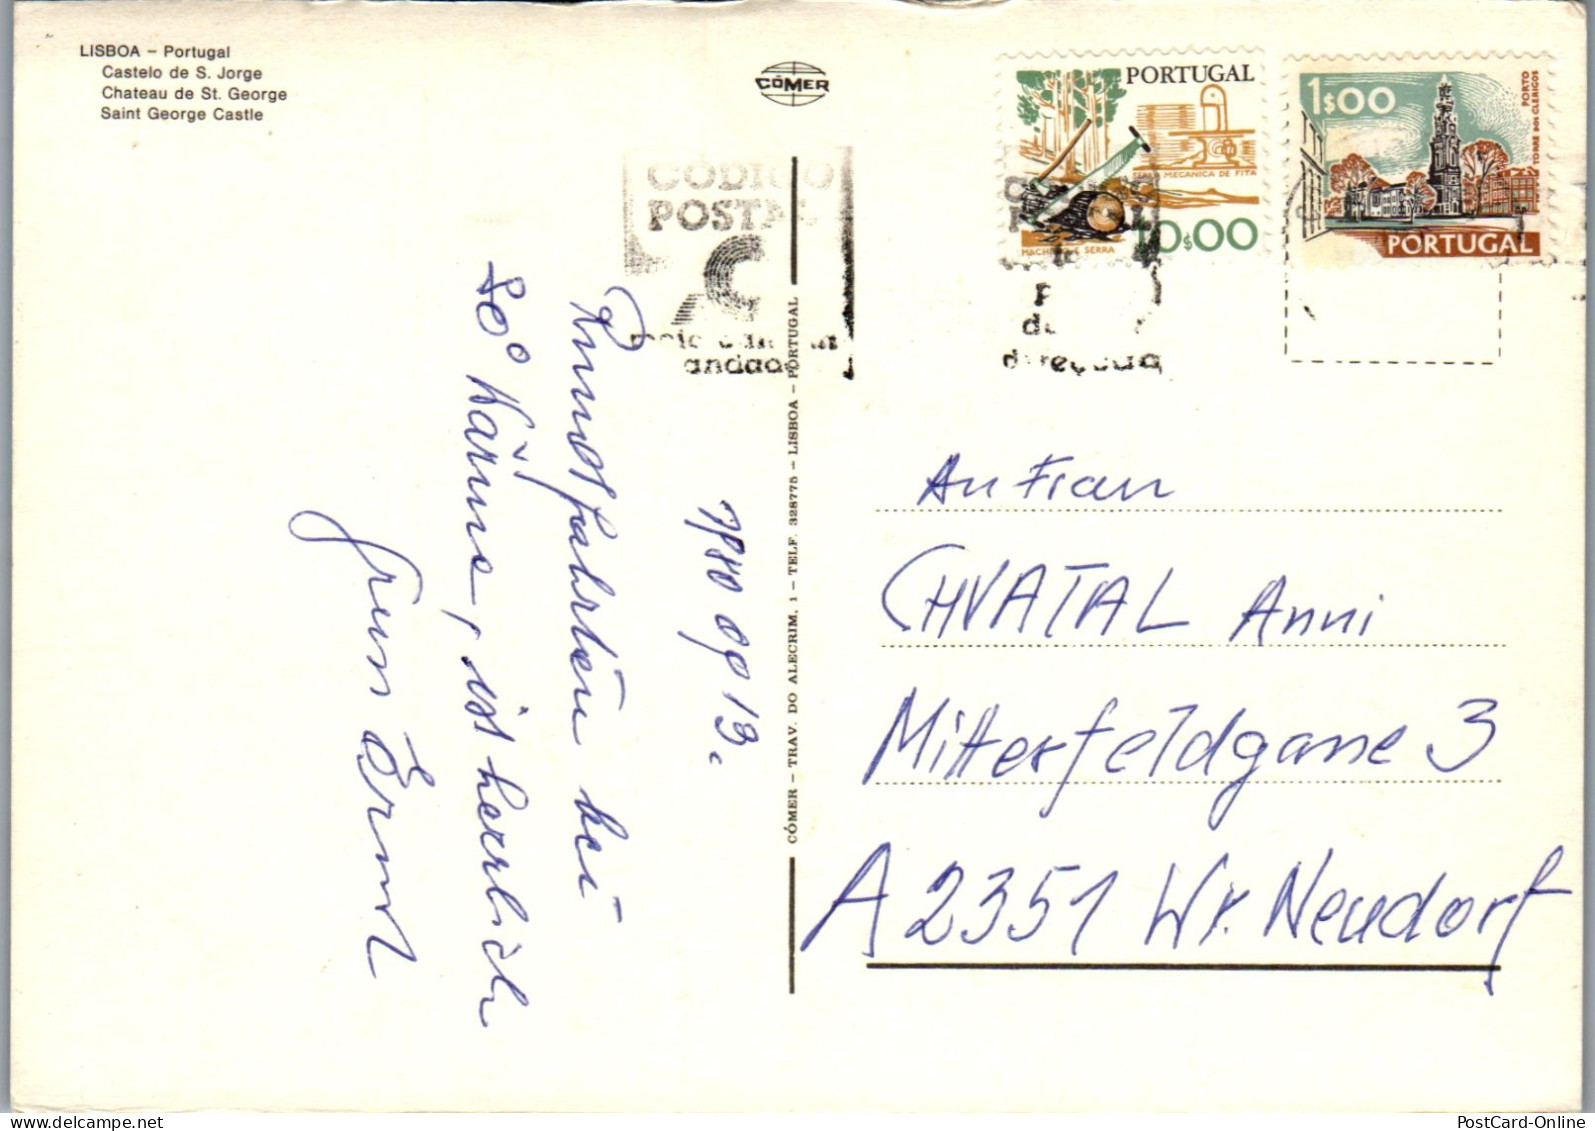 LISBOA – Portugal
Castelo de S. Jorge
Chateau de St. George
Saint George Castle
CÓMER
CÓDIGO
POSTAL
meio caminho
andado
PORTUGAL
SERRA MECANICA DE FITA
MACHADO E SERRA
10$00
1$00
PORTO
TORRE DOS CLERIGOS
PORTUGAL
CÓMER – TRAV. DO ALECRIM, 1 – TELF. 328775 – LISBOA – PORTUGAL
1980 09 13.
Rundfahrten bei
80° Wärme, ist herrlich
An Frau
CHVATAL Anni
Mitterfeldgasse 3
A 2351 Wr. Neudorf
PostCard-Online